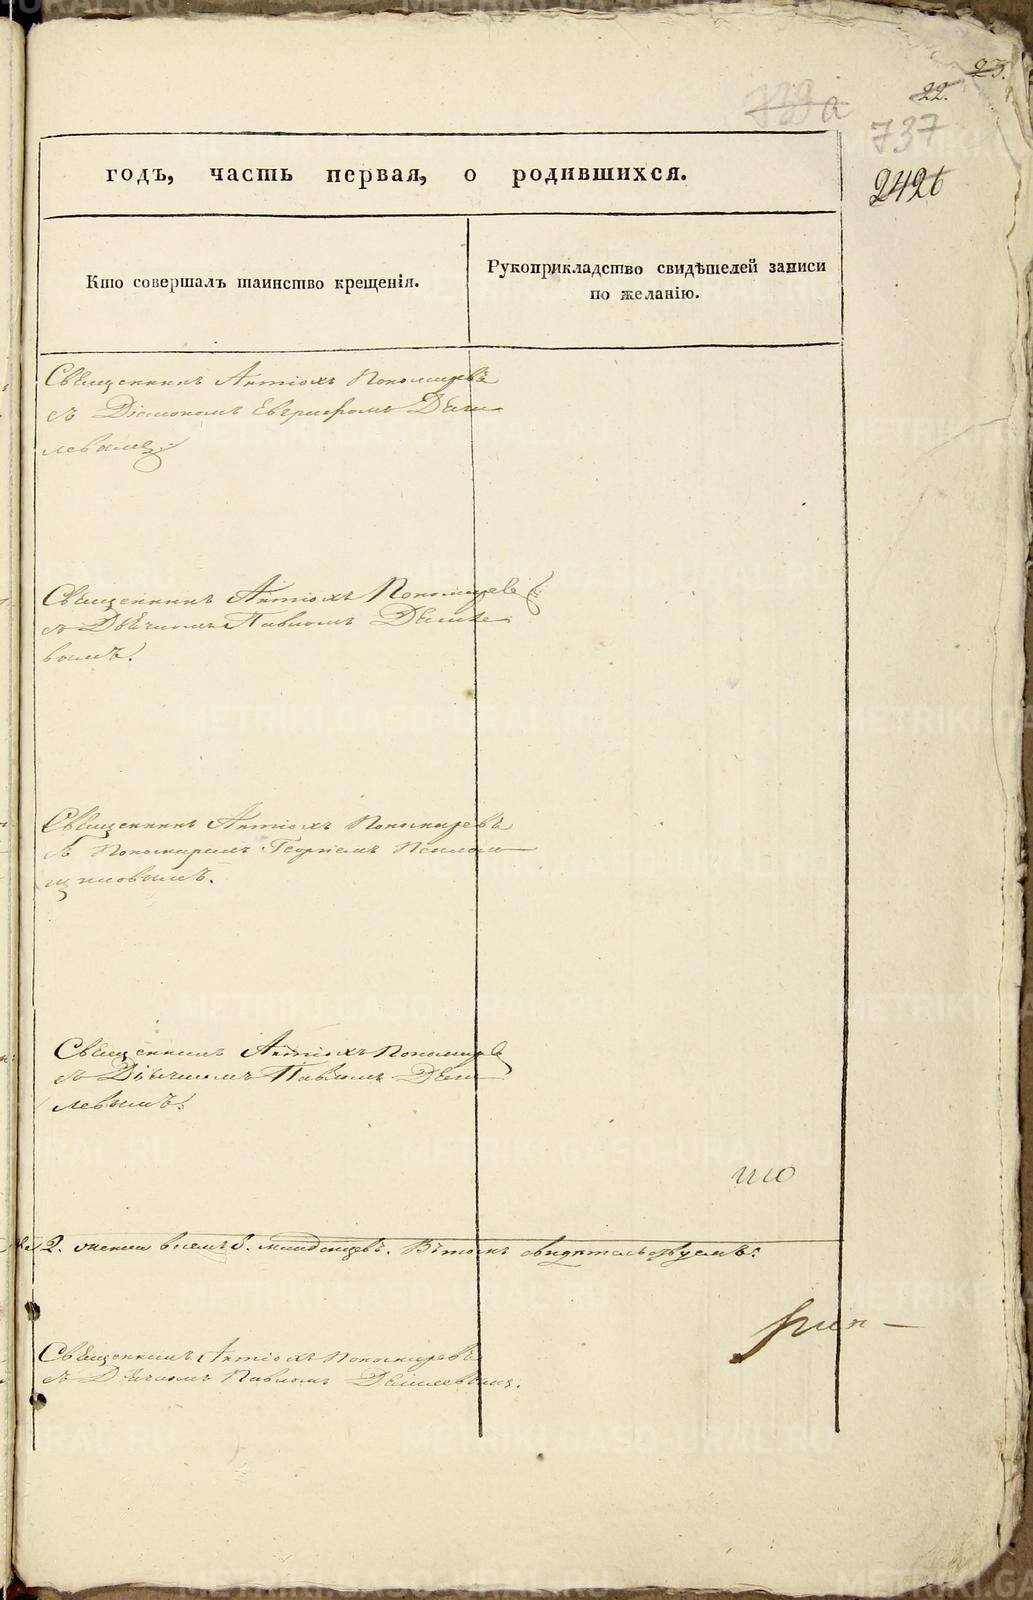 23.
22.
737
2426
годъ, часть первая, о родившихся.
Кто совершалъ таинство крещенія.
Рукоприкладство свидѣтелей записи
по желанію.
Священникъ Антіохъ Пономаревъ
съ Діакономъ
Священникъ Антіохъ Пономаревъ
съ Дьячкомъ Павломъ
вымъ.
Священникъ Антіохъ Пономаревъ
съ Пономаремъ Георгіемъ Псалом
щиковымъ.
Священникъ Антіохъ Пономарев
съ Дьячкомъ Павломъ
левымъ.
2. женска всемъ 8. младенцевъ. Въ томъ свидѣтельствуемъ:
Священникъ Антіохъ Пономаревъ
съ Дьячкомъ Павломъ
METRIKI.GASO-URAL.RU